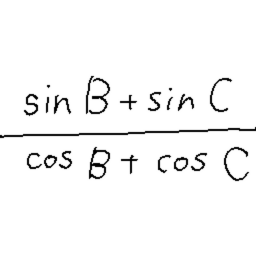 sin B + sin C
cos B + cos C